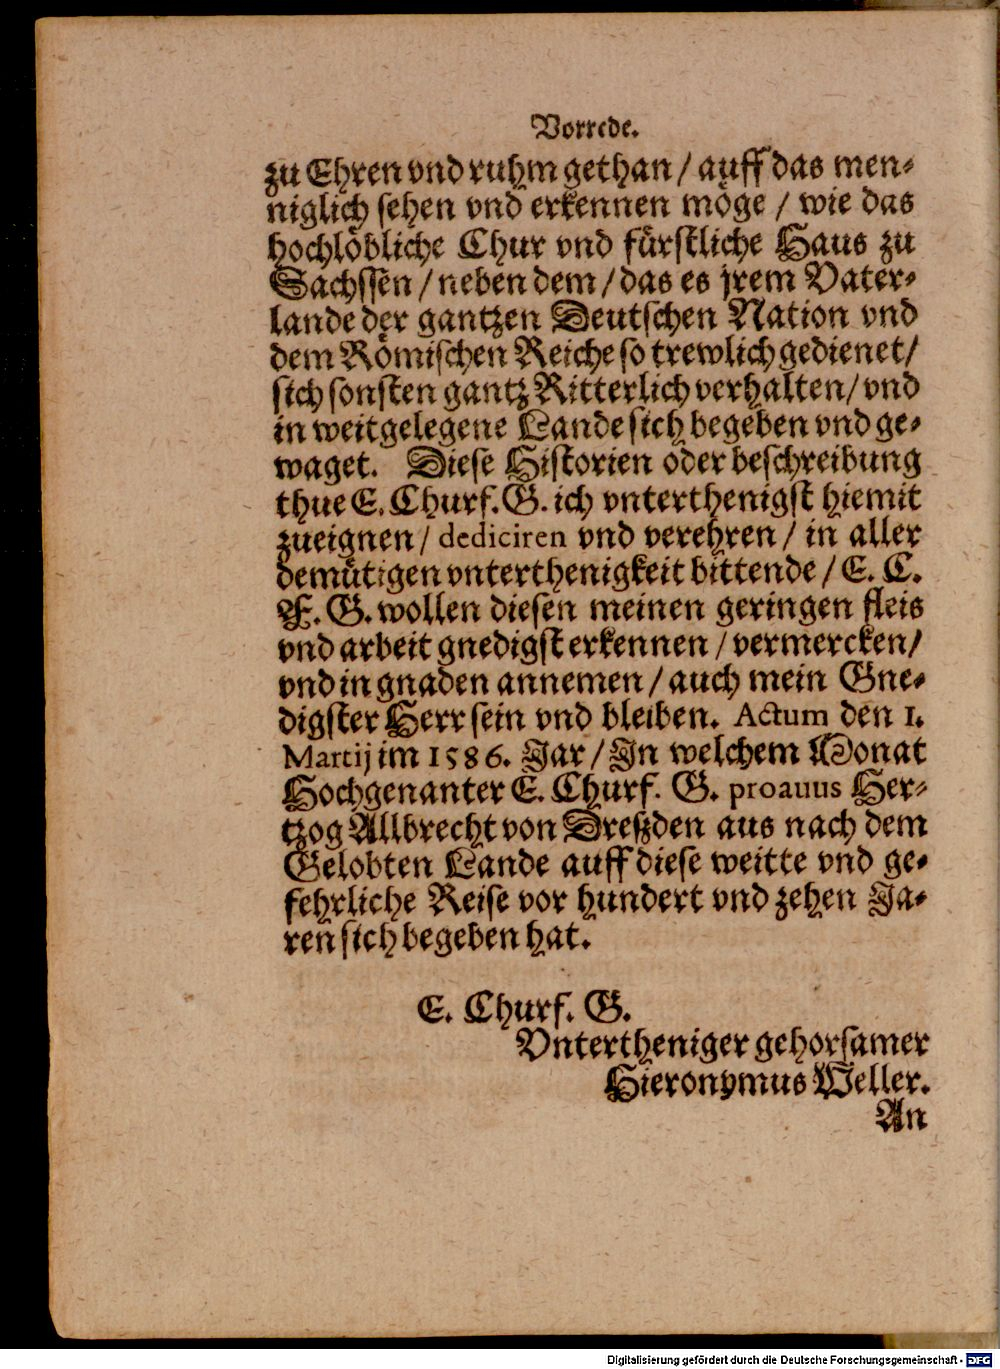 Vorrede.
zu Ehren vnd ruhm gethan / auff das men-
niglich sehen vnd erkennen möge / wie das
hochlöbliche Chur vnd fürstliche Haus zu
Sachssen / neben dem / das es jrem Vater-
lande der gantzen Deutschen Nation vnd
dem Römischen Reiche so trewlich gedienet /
sich sonsten gantz Ritterlich verhalten / vnd
in weitgelegene Lande sich begeben vnd ge-
waget. Diese Historien oder beschreibung
thue E. Churf. G. ich vnterthenigst hiemit
zueignen / dediciren vnd verehren / in aller
demütigen vnterthenigkeit bittende / E. C.
F. G. wollen diesen meinen geringen fleis
vnd arbeit gnedigst erkennen / vermercken /
vnd in gnaden annemen / auch mein Gne-
digster Herr sein vnd bleiben. Actum den 1.
Martij im 1586. Jar / In welchem Monat
Hochgenanter E. Churf. G. proauus Her-
tzog Allbrecht von Dreßden aus nach dem
Gelobten Lande auff diese weitte vnd ge-
fehrliche Reise vor hundert vnd zehen Ja-
ren sich begeben hat.
E. Churf. G.
Vntertheniger gehorsamer
Hieronymus Weller.
An
Digitalisierung gefördert durch die Deutsche Forschungsgemeinschaft - DFG